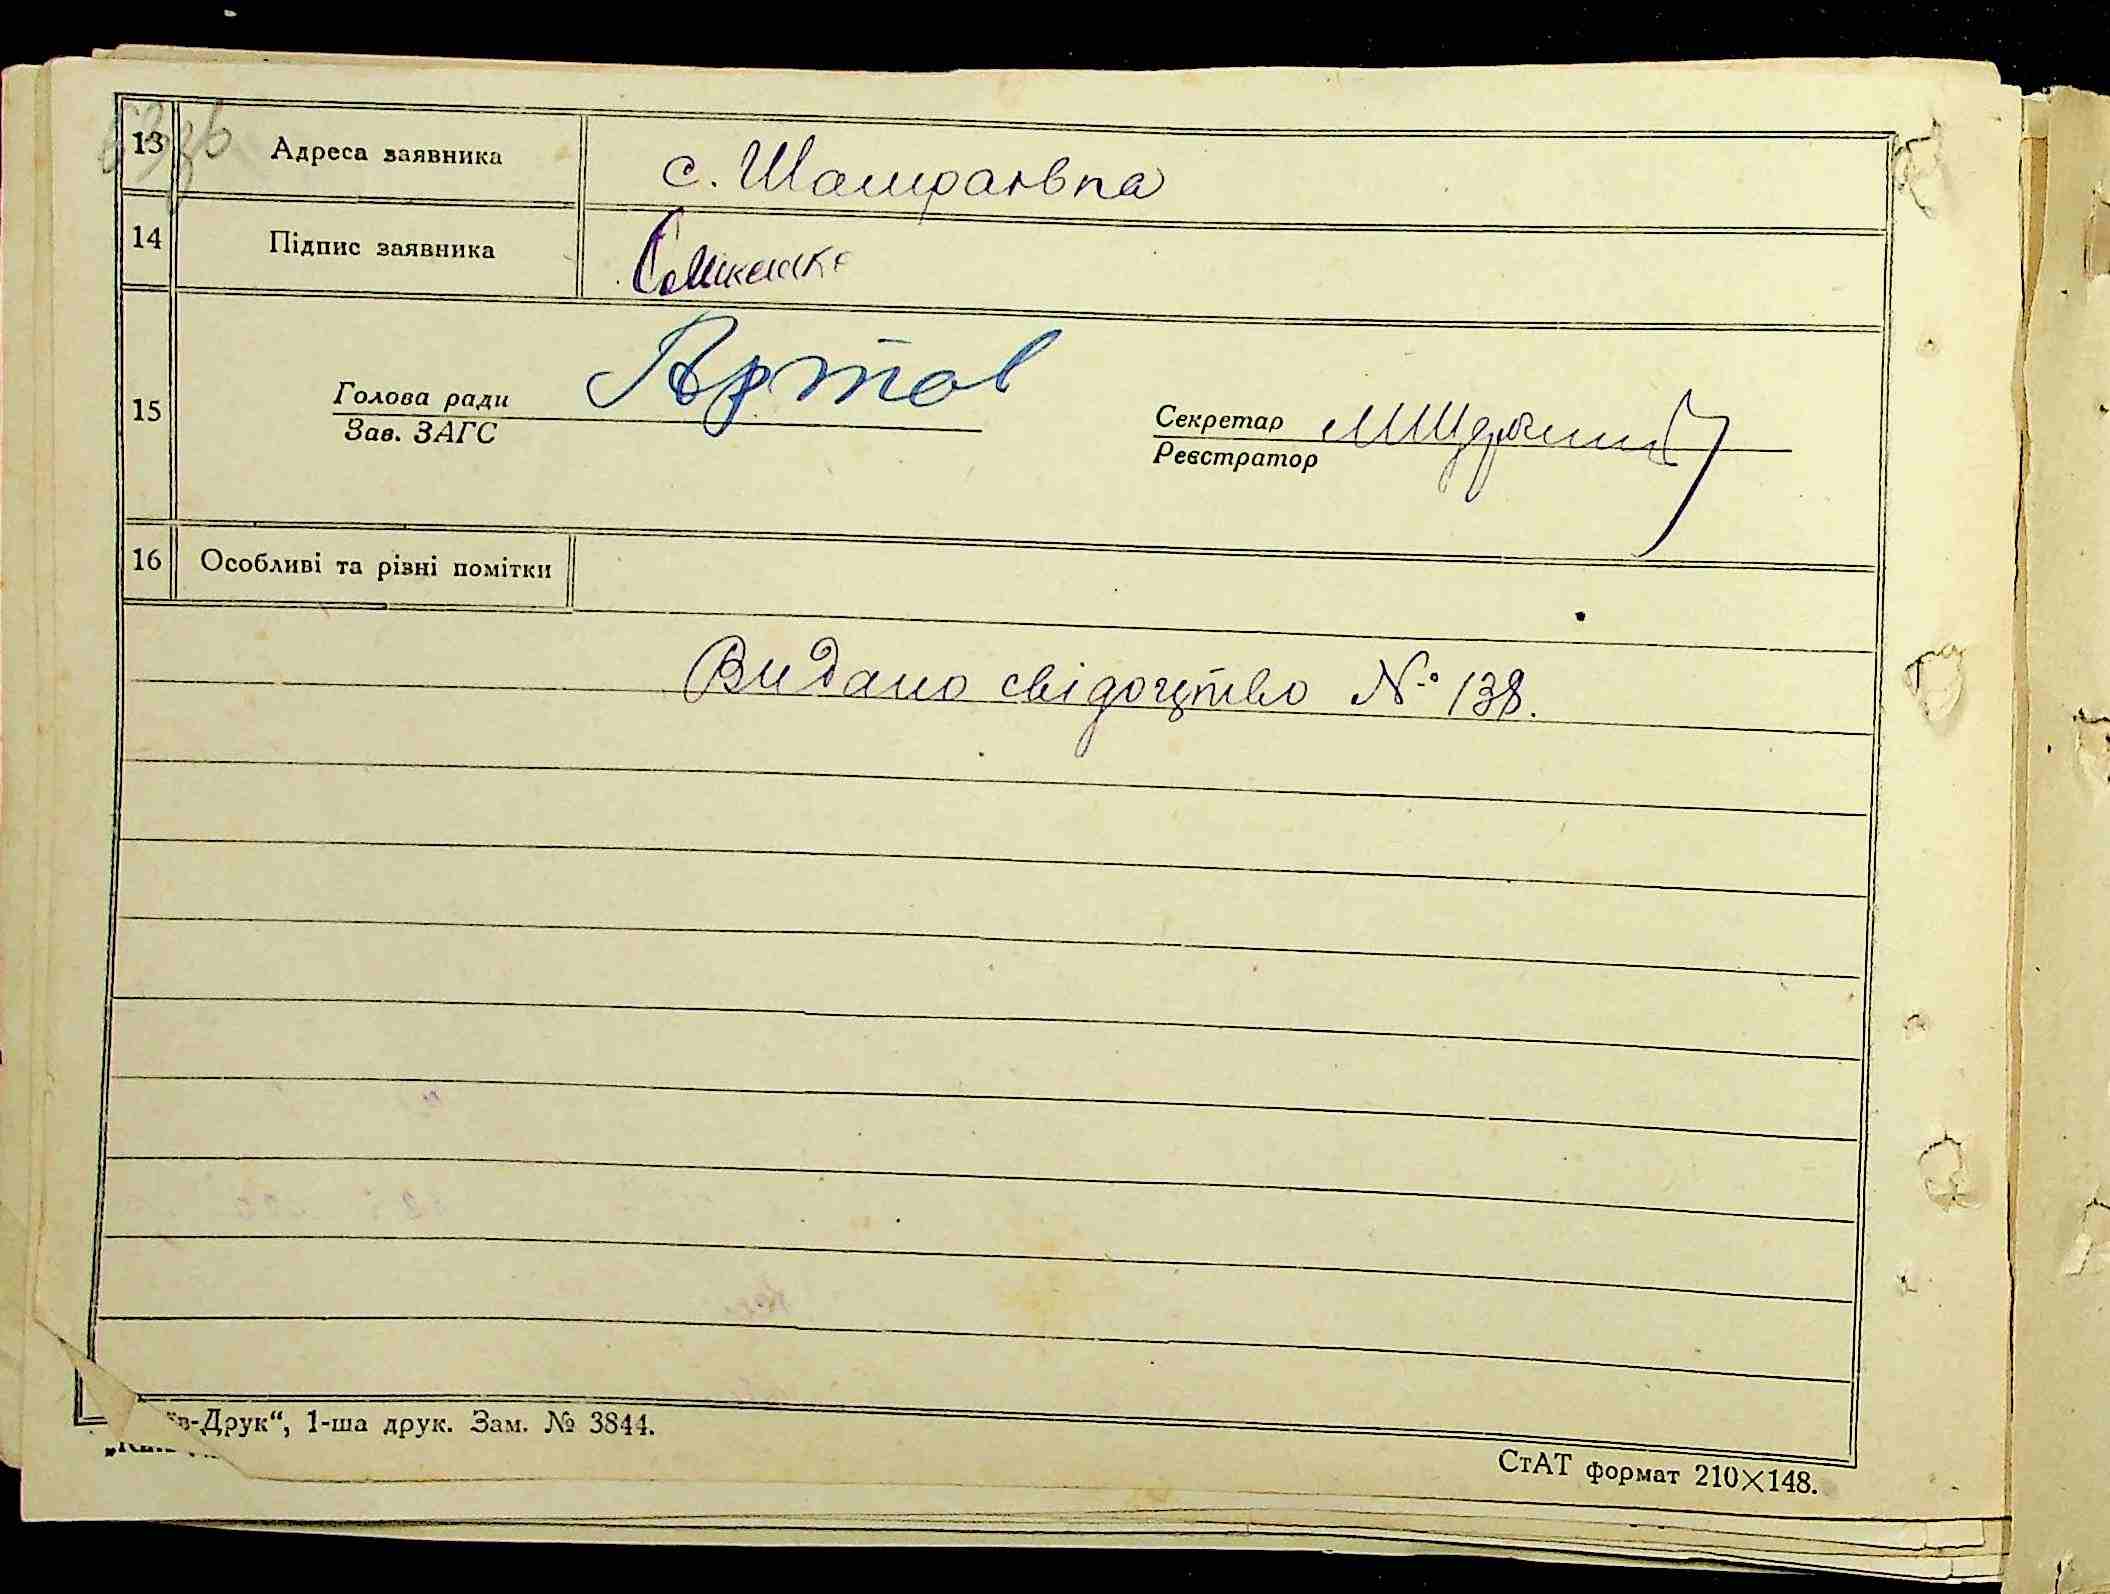 63зв
13 Адреса заявника с. Шамраївка
14 Підпис заявника
15 Голова ради Артов Секретар
Зав. ЗАГС Реєстратор
16 Особливі та різні помітки
Видано свідоцтво № 138.
в-Друк“, 1-ша друк. Зам. № 3844.
СтАТ формат 210×148.